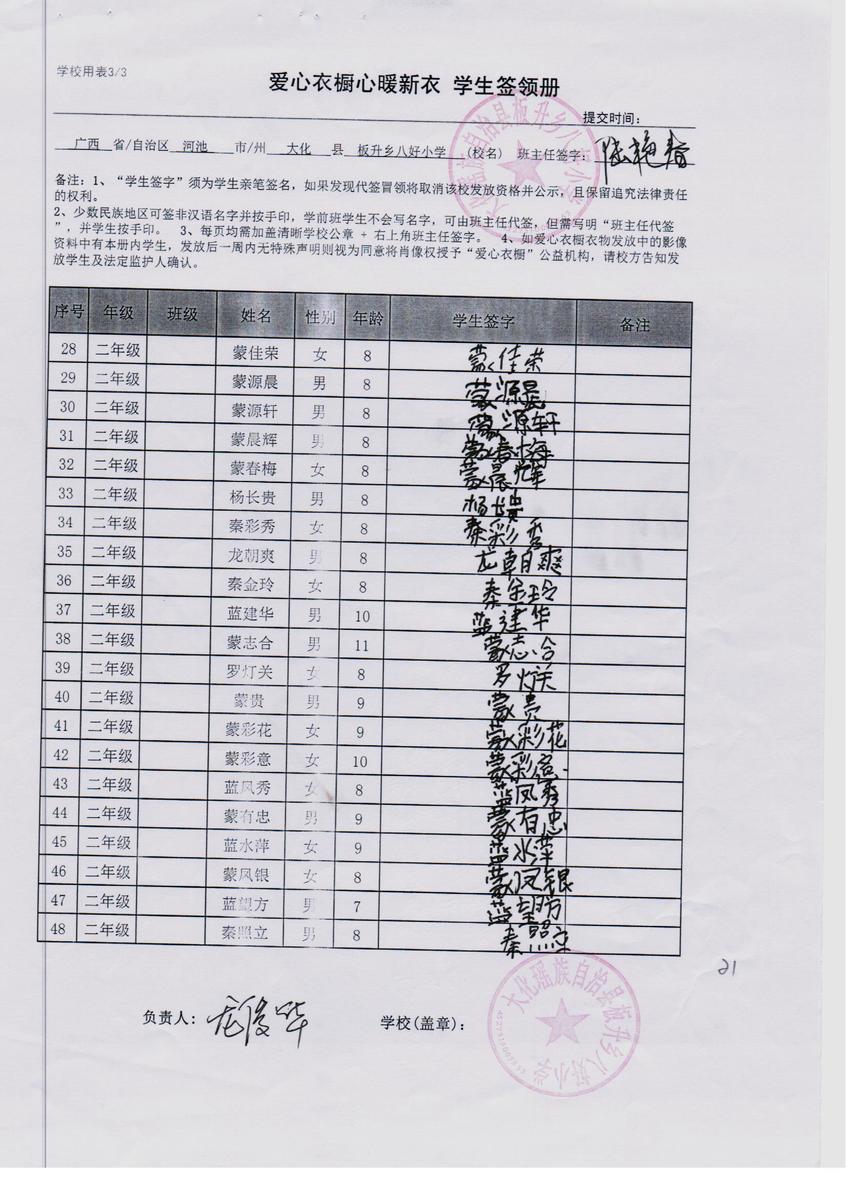 学校用表3/3
爱心衣橱心暖新衣 学生签领册
提交时间:
广西 省/自治区 河池 市/州 大化 县 板升乡八好小学 (校名) 班主任签字: 陆艳春
备注:1、“学生签字”须为学生亲笔签名,如果发现代签冒领将取消该校发放资格并公示,且保留追究法律责任
的权利。
2、少数民族地区可签非汉语名字并按手印,学前班学生不会写名字,可由班主任代签,但需写明“班主任代签
”,并学生按手印。 3、每页均需加盖清晰学校公章 + 右上角班主任签字。 4、如爱心衣橱衣物发放中的影像
资料中有本册内学生,发放后一周内无特殊声明则视为同意将肖像权授予“爱心衣橱”公益机构,请校方告知发
放学生及法定监护人确认。
序号 年级 班级 姓名 性别 年龄 学生签字 备注
28 二年级 蒙佳荣 女 8 蒙佳荣
29 二年级 蒙源晨 男 8 蒙源晨
30 二年级 蒙源轩 男 8 蒙源轩
31 二年级 蒙晨辉 男 8 蒙春梅
32 二年级 蒙春梅 女 8 蒙晨辉
33 二年级 杨长贵 男 8 杨长贵
34 二年级 秦彩秀 女 8 秦彩秀
35 二年级 龙朝爽 男 8 龙朝爽
36 二年级 秦金玲 女 8 秦金玲
37 二年级 蓝建华 男 10 蓝建华
38 二年级 蒙志合 男 11 蒙志合
39 二年级 罗灯关 女 8 罗灯关
40 二年级 蒙贵 男 9 蒙贵
41 二年级 蒙彩花 女 9 蒙彩花
42 二年级 蒙彩意 女 10 蒙彩意
43 二年级 蓝凤秀 女 8 蓝凤秀
44 二年级 蒙有忠 男 9 蒙有忠
45 二年级 蓝水萍 女 9 蓝水萍
46 二年级 蒙凤银 女 8 蒙凤银
47 二年级 蓝望方 男 7 蓝望方
48 二年级 秦照立 男 8 秦照立
21
负责人: 学校(盖章):
大化瑶族自治县板升乡八好小学